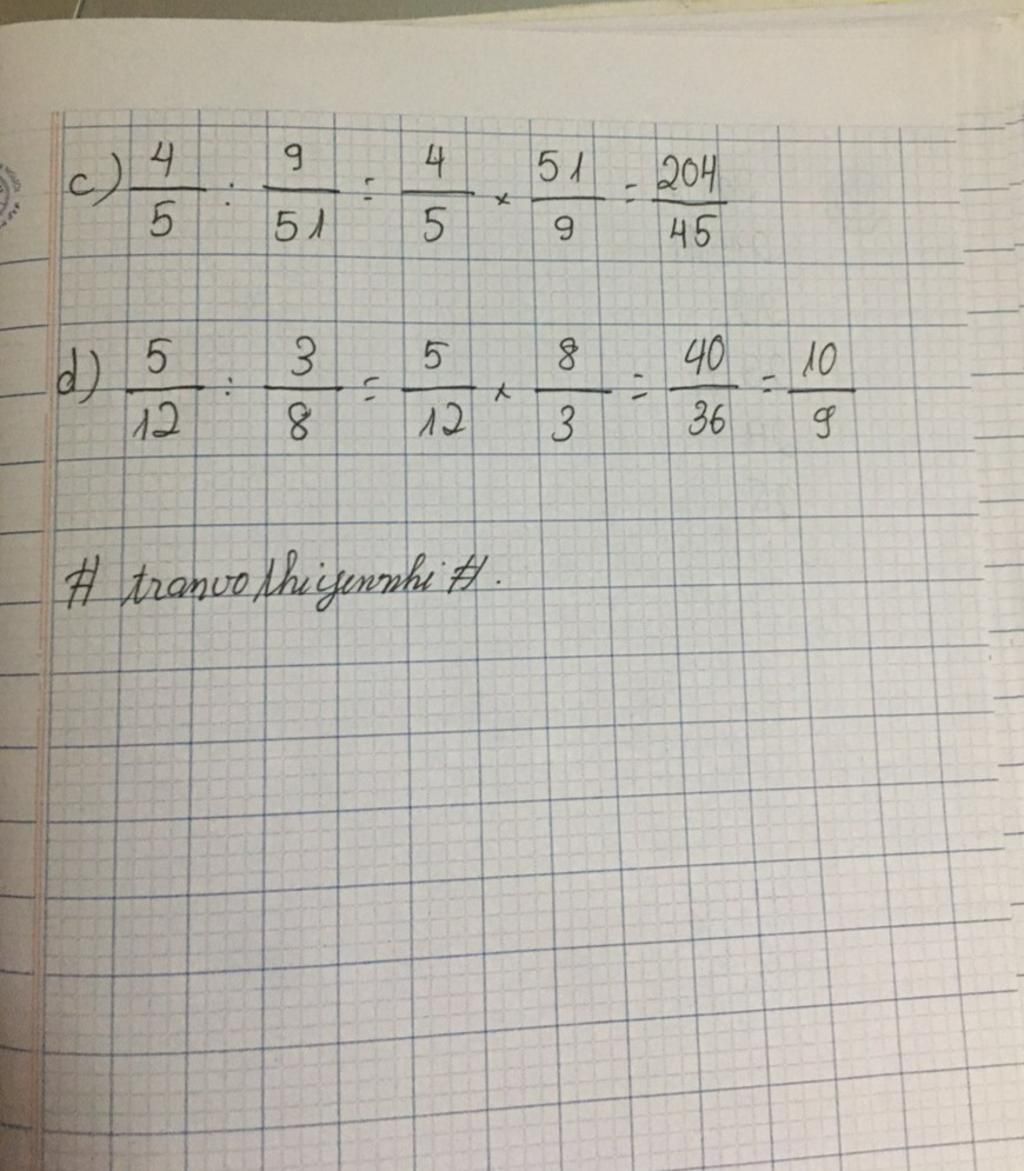 c) 4/5 : 9/51 = 4/5 × 51/9 = 204/45
d) 5/12 : 3/8 = 5/12 × 8/3 = 40/36 = 10/9
# tranvothiyennhi #.